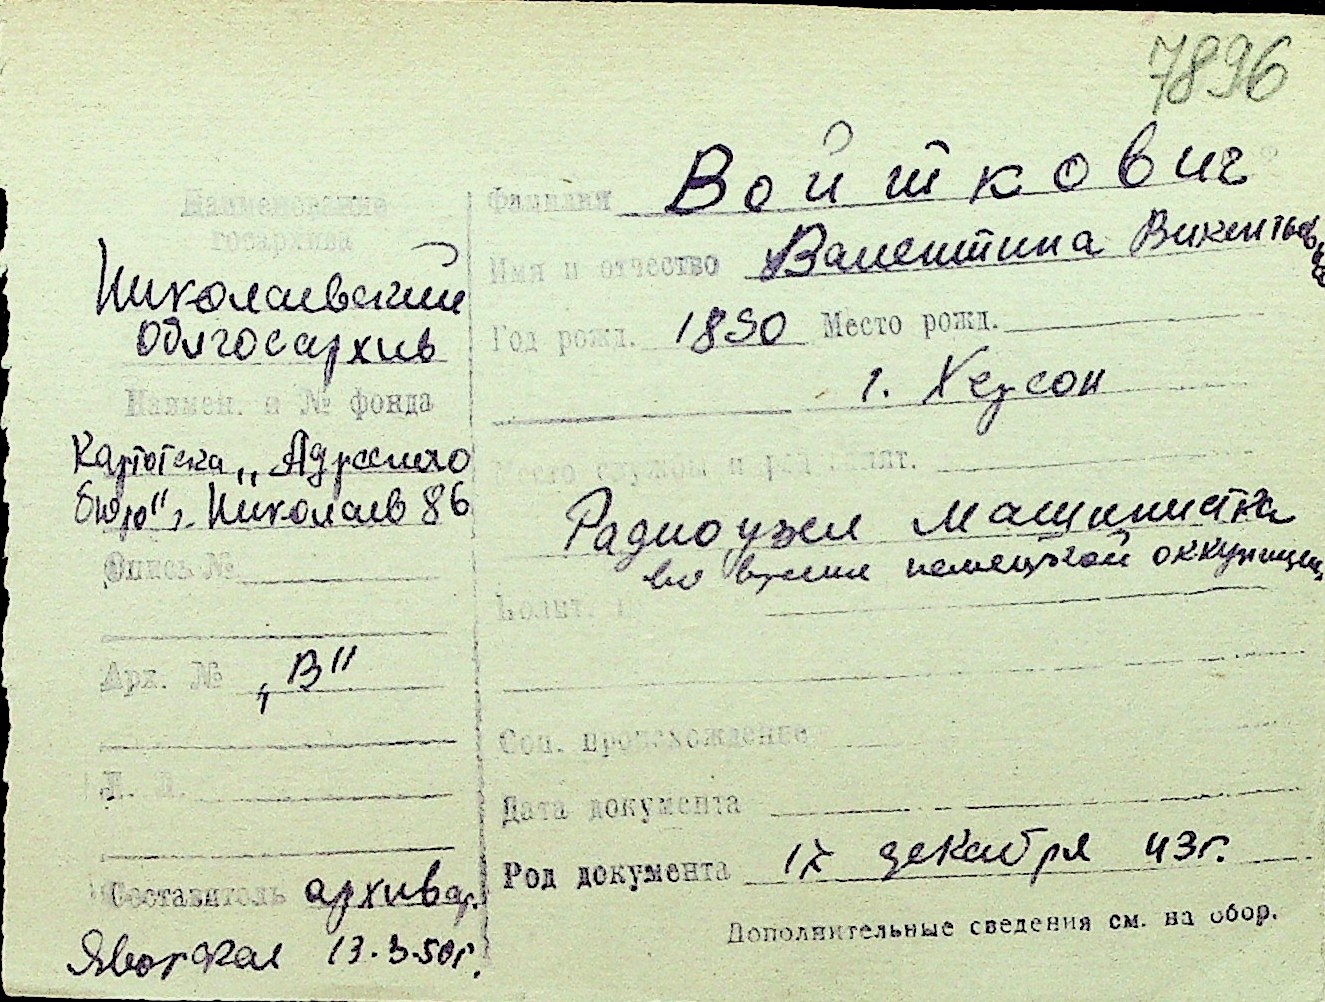 7896
Наименование
госархива
Николаевский
Облгосархив
Наимен. и № фонда
Картотека „Адресного
бюро" г. Николаев 86
Опись №
Арх. № „В"
Л. Л.
Составитель архивар.
Яворская 13.3.50г.
Фамилия Войткович
Имя и отчество Валентина Викентьевна
Год рожд. 1890 Место рожд.
г. Херсон
Место службы и род занят.
Радиоузел машинистка
во время немецкой оккупации
Соц. происхождение
Дата документа
Род документа 17 декабря 43г.
Дополнительные сведения см. на обор.